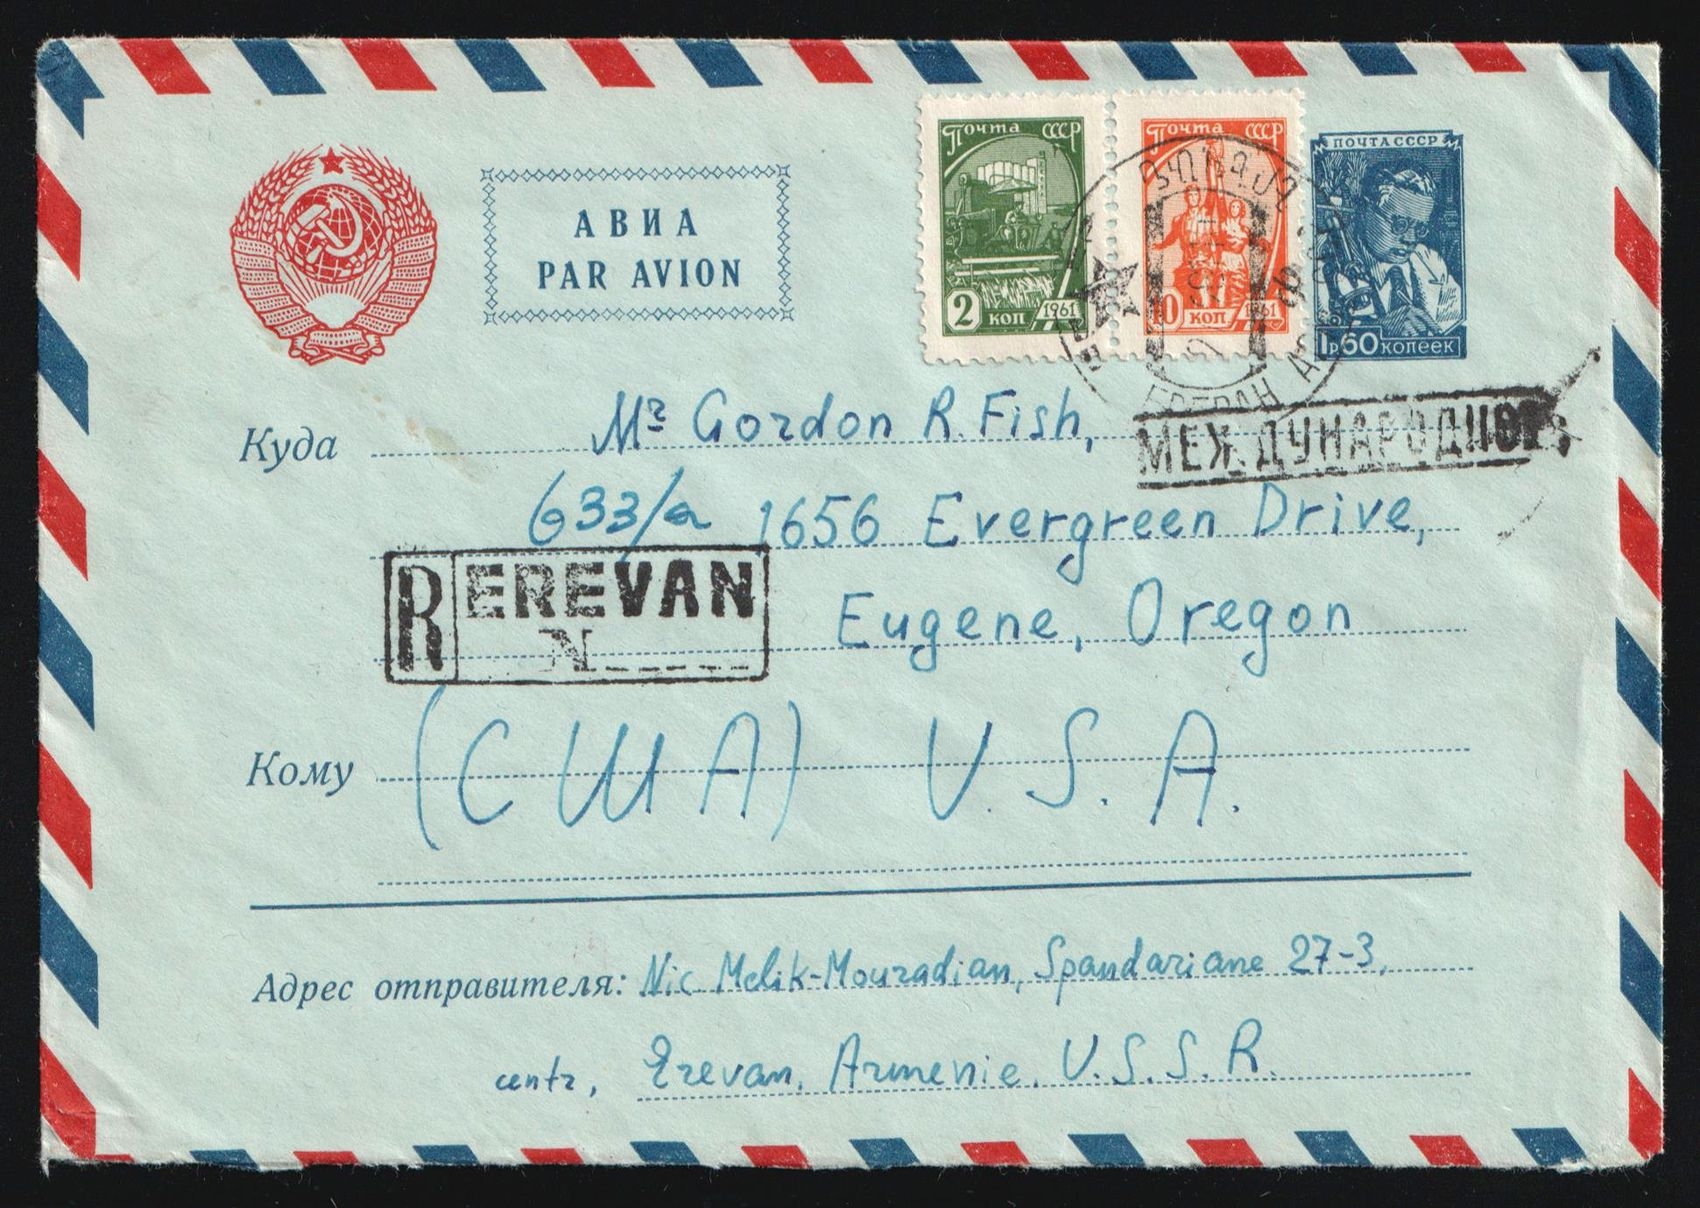 Почта СССР
2 коп 1961
Почта СССР
10 коп 1961
ПОЧТА СССР
1р60 копеек
АВИА
PAR AVION
ЕРЕВАН
МЕЖДУНАРОДНОЕ
Куда Mr Gordon R. Fish,
633/a 1656 Evergreen Drive,
R EREVAN
N
Eugene, Oregon
Кому (США) U.S.A.
Адрес отправителя: Nic Melik-Mouradian, Spandariane 27-3,
centr, Erevan, Armenie. U.S.S.R.